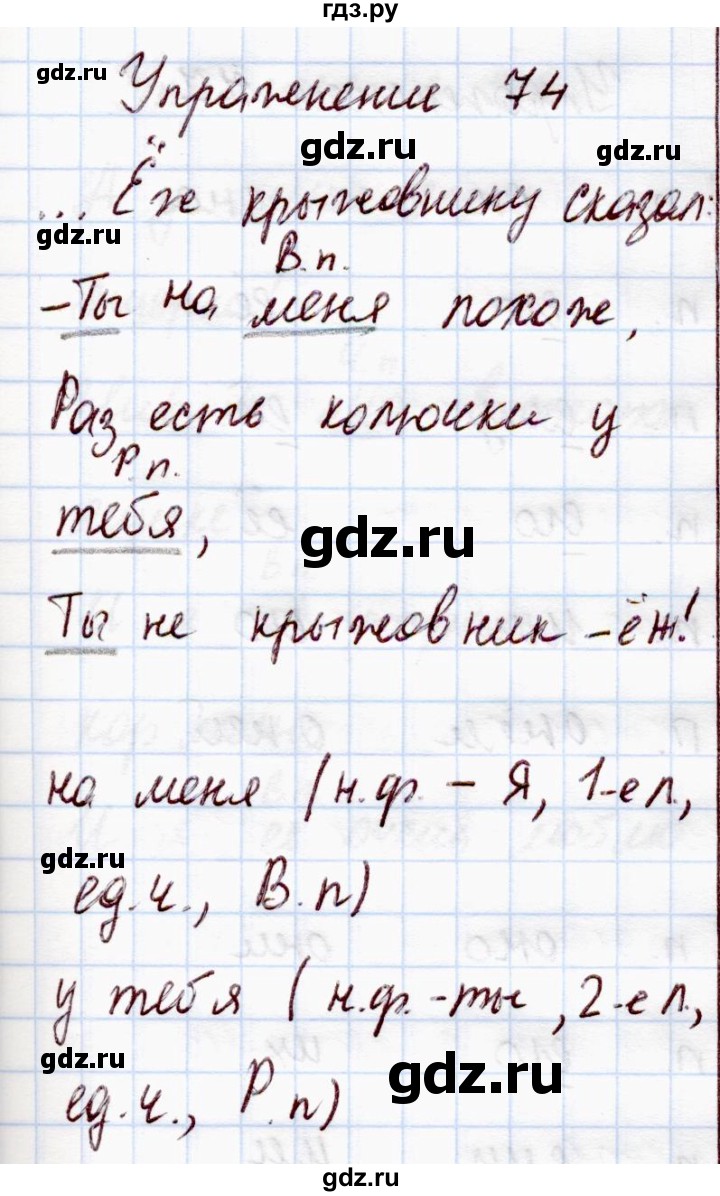 гдз.ру
gdz.ru
Упражнение 74
gdz.ru
gdz.ru
... Ёж крыжовнику сказал:
gdz.ru
В.п.
-Ты на меня похож,
Раз есть колючки у
Р.п.
тебя,
gdz.ru
Ты не крыжовник -ёж!
на меня (н.ф. - Я, 1-е л.,
gdz.ru
ед.ч., В.п)
у тебя (н.ф.-ты, 2-е л.,
gdz.ru
gdz.ru
ед.ч., Р.п)
gdz.ru